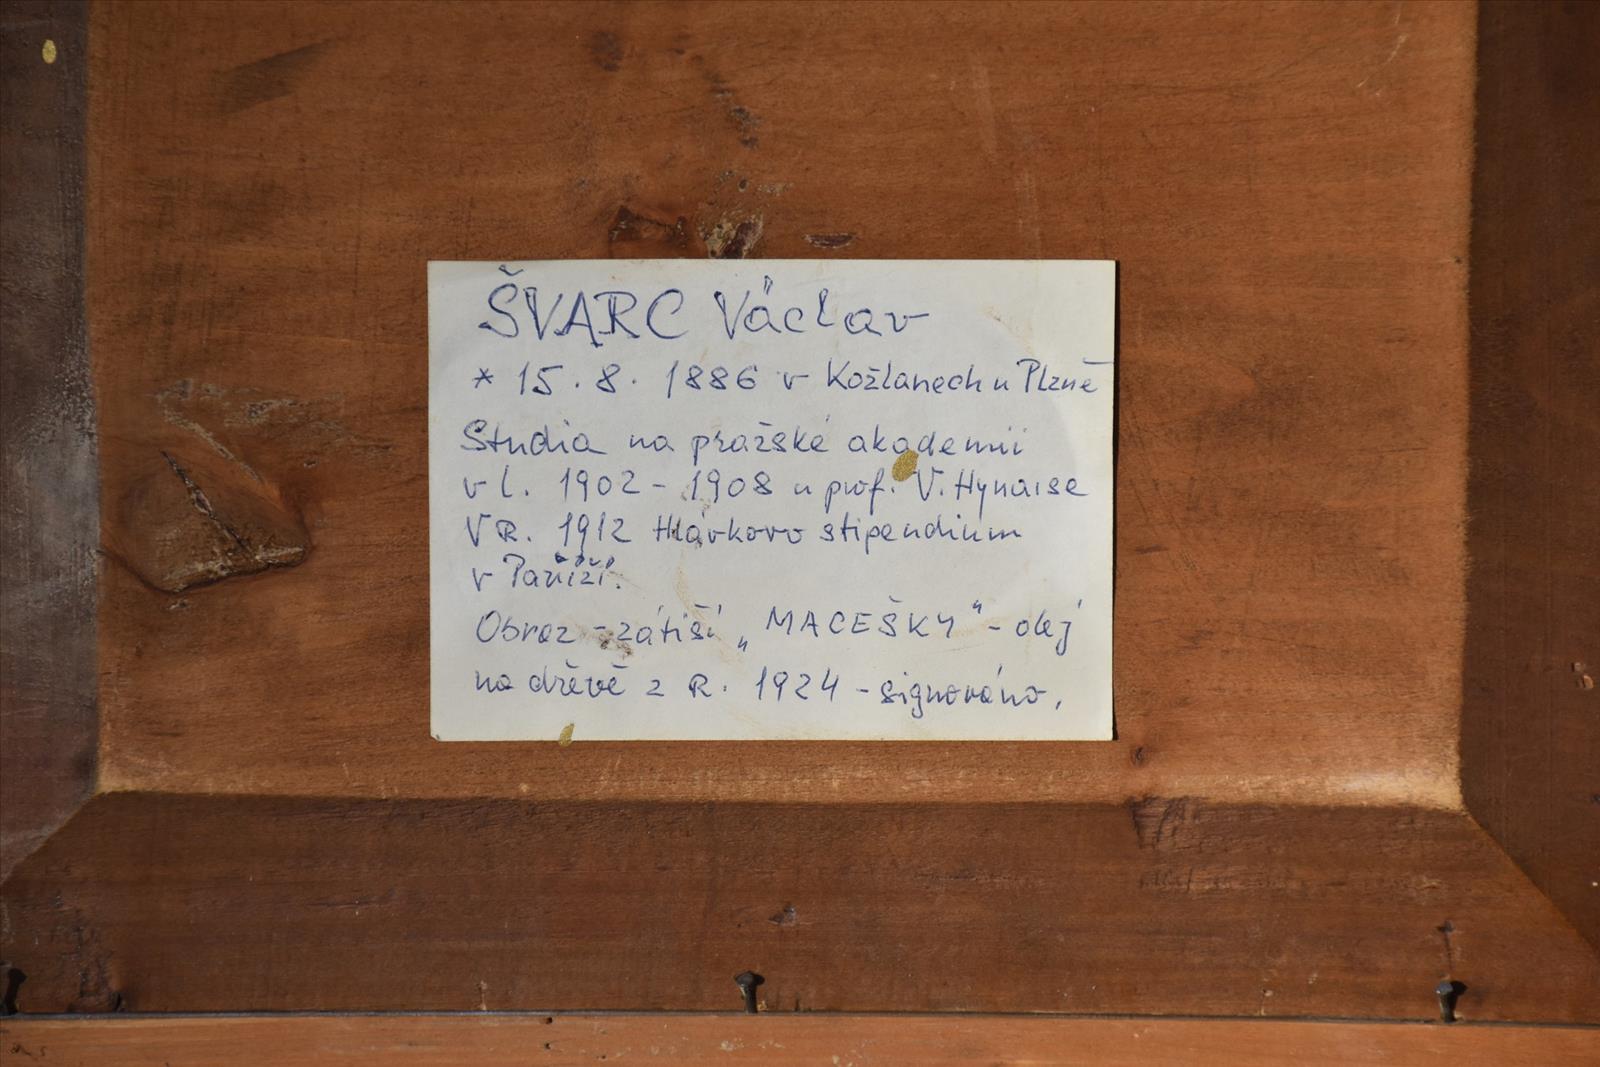 ŠVARC Václav
* 15. 8. 1886 v Kožlanech u Plzně
Studia na pražské akademii
v l. 1902 - 1908 u prof. V. Hynaise
V R. 1912 Hlávkovo stipendium
v Paříži.
Obraz - zátiší „MACEŠKY" - olej
na dřěvě z R. 1924 - signováno.